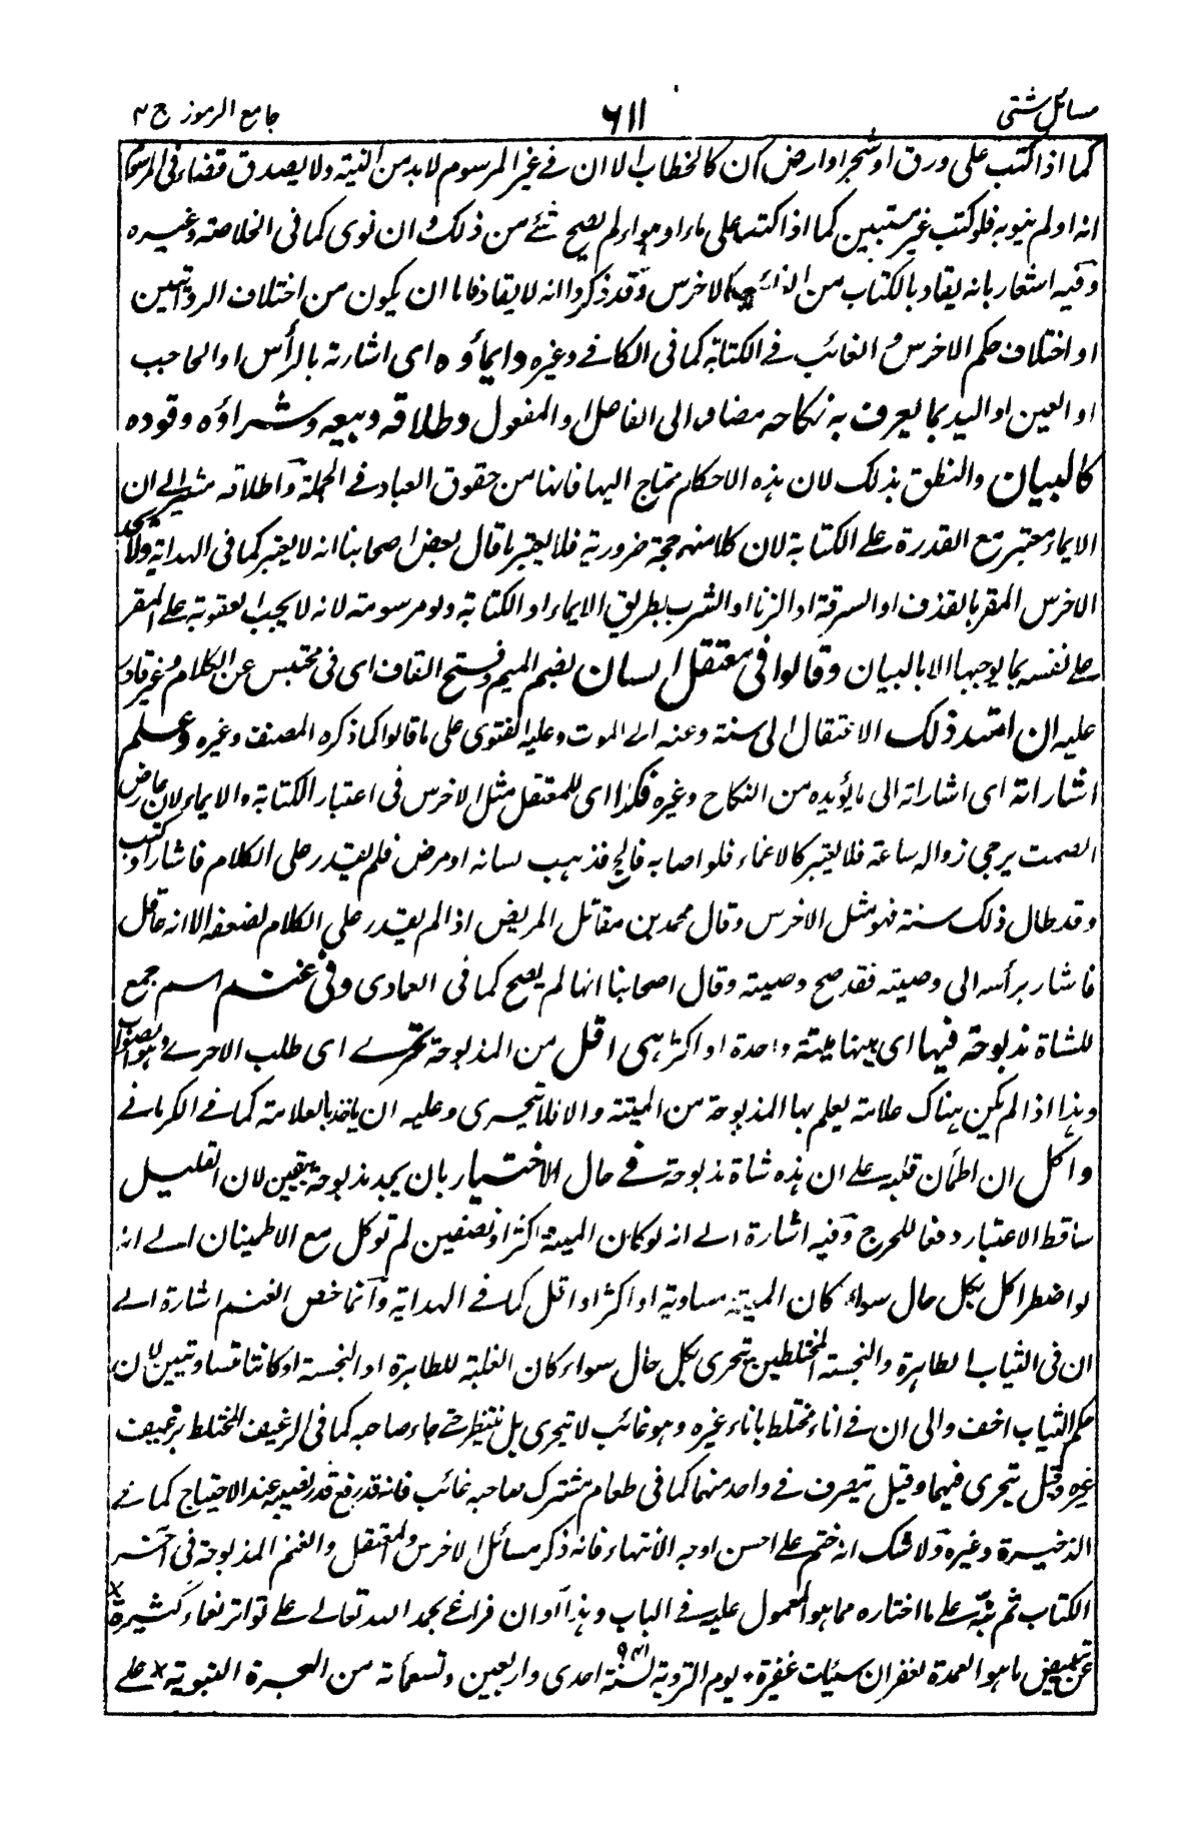 مسائل شتى
٦١١
جامع الرموز ج ٢
كما اذا كتب على ورق او شجر او ارض كان كالخطاب الا ان في غير المرسوم لا بد من النية ولا يصدق قضاء في المرسوم
انه لم ينو به فلو كتب غير مستبين كما اذا كتب على ماء او هواء لم يصح شئ من ذلك وان نوى كما فى الخلاصة وغيره
وفيه اشعار بانه يقاد بالكتاب من الغائب كالاخرس وقد ذكروا انه لا يقاد فاما ان يكون من اختلاف الروايتين
او اختلاف حكم الاخرس و الغائب في الكتابة كما فى الكافے وغيره وايماؤه اى اشارته بالرأس او الحاجب
او العين او اليد بما يعرف به نكاحه مضاف الى الفاعل او المفعول وطلاقه وبيعه وشراؤه وقوده
كالبيان والنطق بذلك لان هذه الاحكام محتاج اليها فانها من حقوق العباد فے الجملة واطلاقه مشير الے ان
الايماء معتبر مع القدرة علے الكتابة لان كلا منهما حجة ضرورية فلا يعتبر ما قال بعض اصحابنا انه لا يعتبر كما فى الهداية ولا يحد
الاخرس المقر بالقذف او السرقة او الزنا او الشرب بطريق الايماء او الكتابة ولو مرسومة لانه لا يجب العقوبة علے المقر
علے نفسه بما يوجبها الا بالبيان وقالوا فى معتقل اللسان بضم الميم وفتح القاف اى فى محتبس عن الكلام وغير قادر
عليه ان امتد ذلك الاعتقال الى سنة وعنه الے الموت وعليه الفتوى على ما قالوا كما ذكره المصنف وغيره وعلم
اشاراته اى اشاراته الى ما يؤيده من النكاح وغيره فكذا اى للمعتقل مثل الاخرس فى اعتبار الكتابة والايماء لان عارض
الصمت يرجى زواله ساعة فلا يعتبر كالاغماء فلو اصابه فالج فذهب لسانه او مرض فلم يقدر على الكلام فاشار او كتب
وقد طال ذلك سنة فهو مثل الاخرس وقال محمد بن مقاتل المريض اذا لم يقدر على الكلام لضعفه الا انه عاقل
فاشار برأسه الى وصيته فقد صح وصيته وقال اصحابنا انها لم يصح كما فى العمادى وفى غنم اسم جمع
للشاة مذبوحة فيها اى بينها ميتة واحدة او اكثر هى اقل من المذبوحة تحرے اى طلب الاحرے وهو الصواب
وهذا اذا لم يكن هناك علامة يعلم بها المذبوحة من الميتة والا فلا يتحرى وعليه ان ياخذ بالعلامة كما فے الكرمانے
واكل ان اطمأن قلبه علے ان هذه شاة مذبوحة فے حال الاختيار بان يجد مذبوحة بيقين لان القليل
ساقط الاعتبار دفعا للحرج وفيه اشارة الے انه لو كان الميتة اكثر او نصفين لم توكل مع الاطمينان الے انه
لو اضطر اكل بكل حال سواء كان الميتة مساوية او اكثر او اقل كما فے الهداية وانما خص الغنم اشارة الے
ان فى الثياب الطاهرة والنجسة المختلطين يتحرى بكل حال سواء كان الغلبة للطاهرة او النجسة او كانتا متساويتين لان
حكم الثياب اخف والى ان فے اناء مختلط باناء غيره وهو غائب لا يتحرى بل ينتظر حتے جاء صاحبه كما فى الرغيف المختلط برغيف
غيره وقيل يتحرى فيهما وقيل يتصرف فے واحد منهما كما فى طعام مشترك صاحبه غائب فانه قد رفع قدر نصيبه عند الاحتياج كما فے
الذخيرة وغيره ولا شك انه ختم علے احسن اوجه الانتهاء فانه ذكر مسائل الاخرس والمعتقل والغنم المذبوحة فى آخر
الكتاب ثم نبه علے ما اختاره مما هو المعمول عليه فے الباب وهذا اوان فراغے بحمد الله تعالے علے تواتر نعماء كثيرة
عن تبييض ما هو العمدة لغفران سيئات غفيرة يوم التروية لسنة ٩٤١ احدى واربعين وتسعمائة من الهجرة النبوية علے